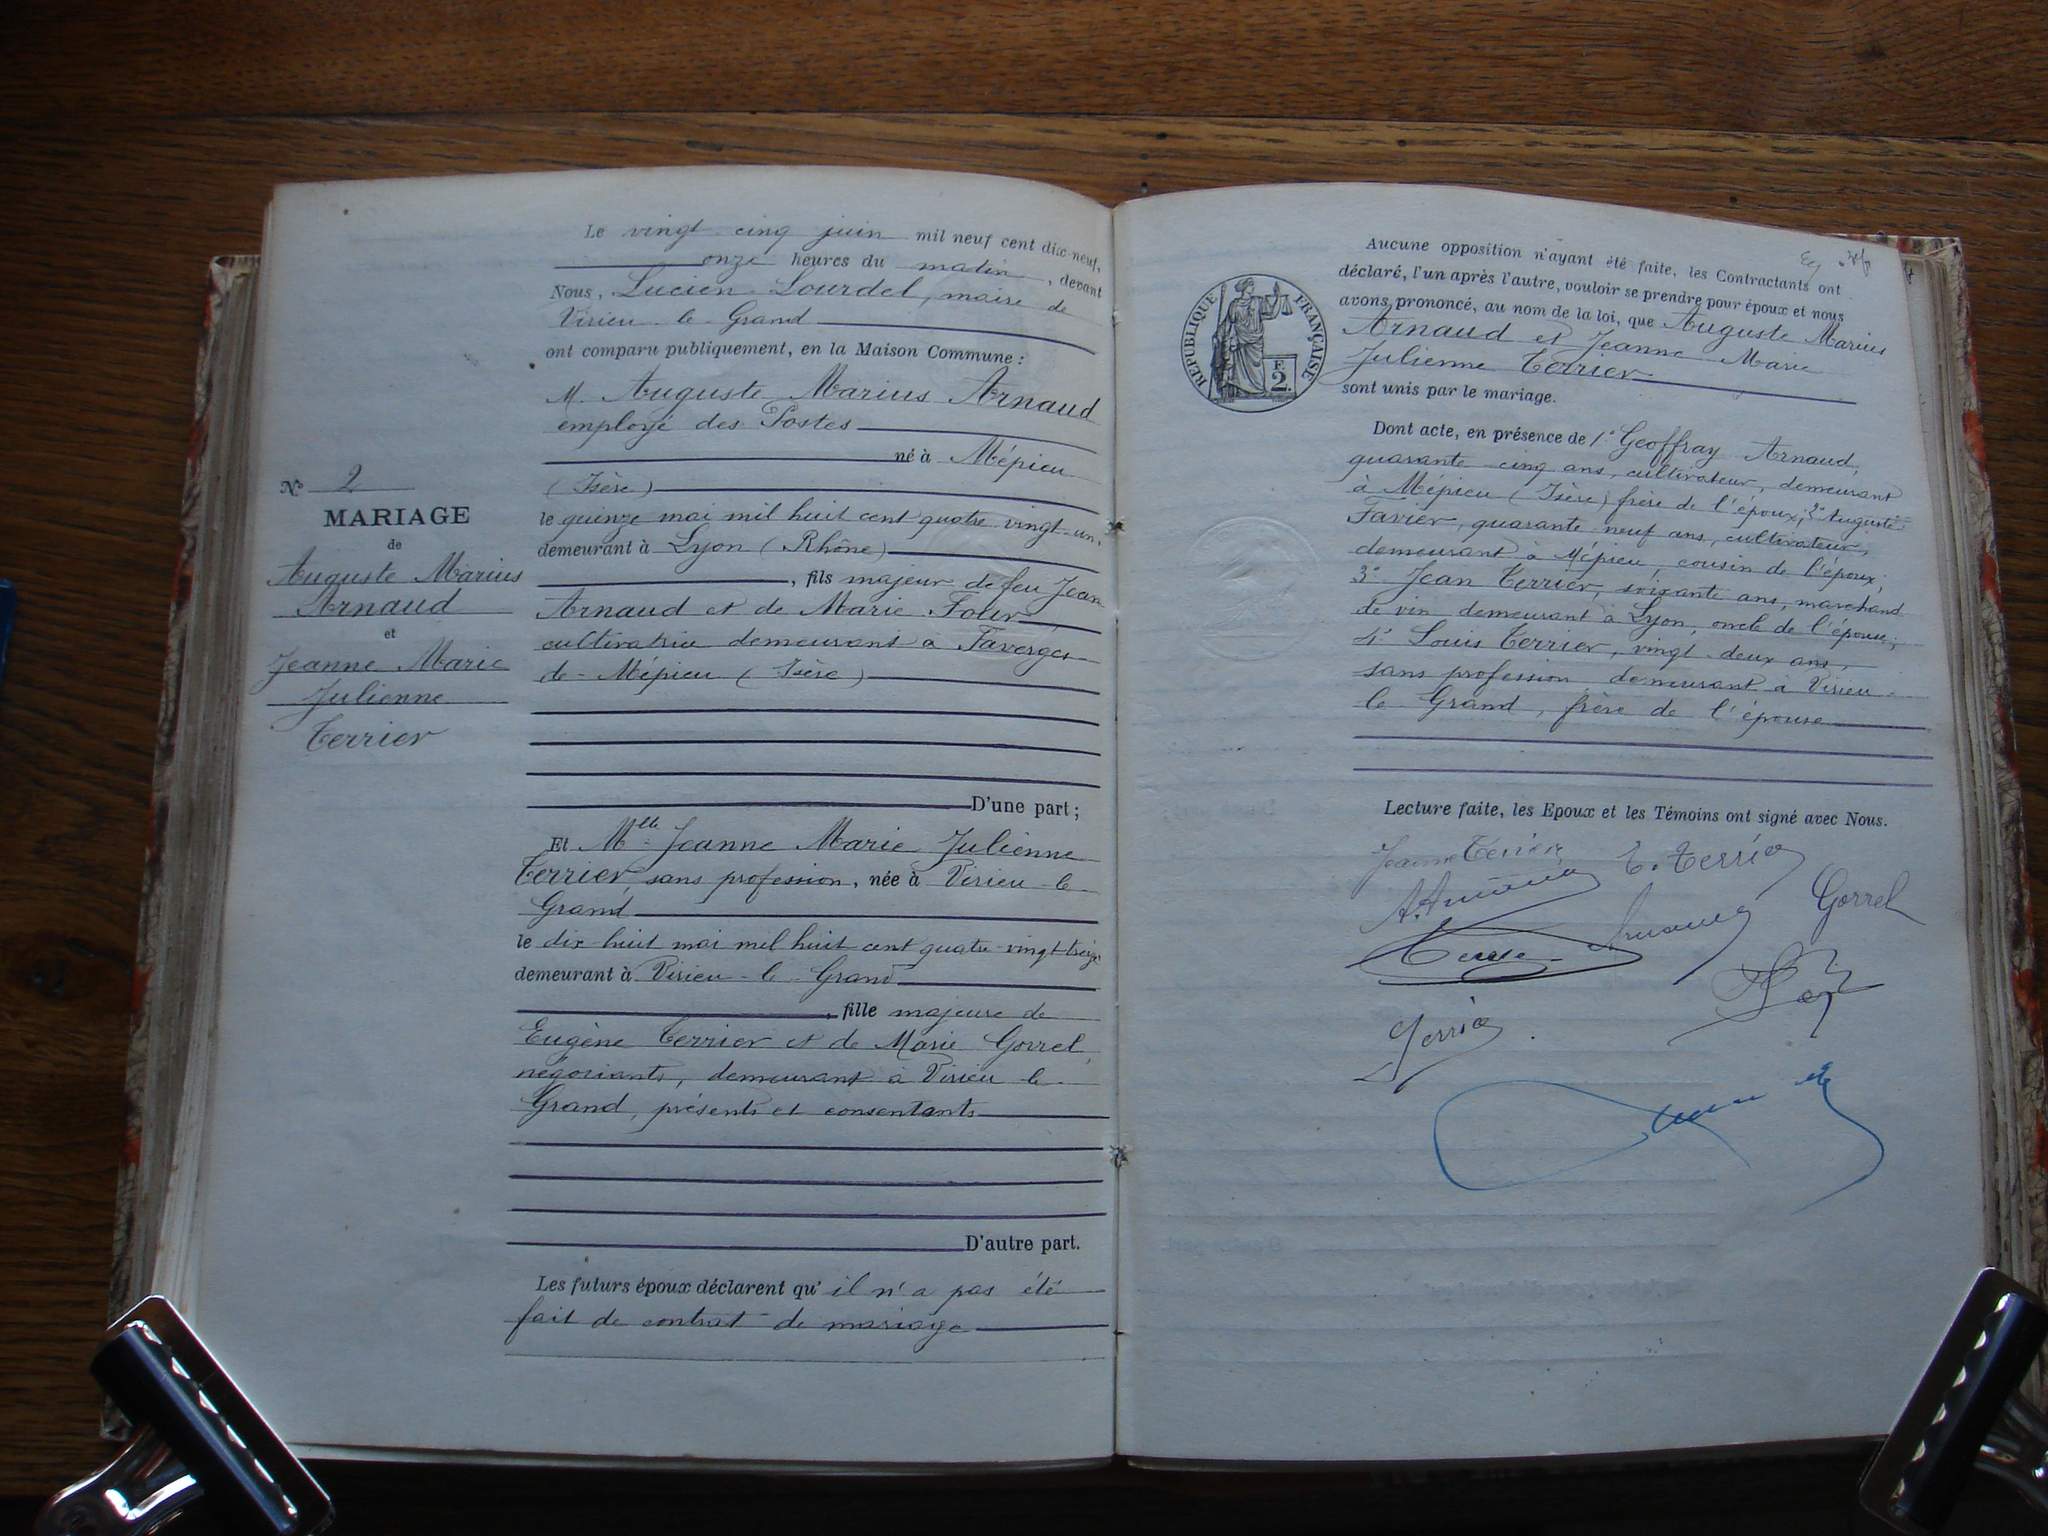 Le vingt cinq juin mil neuf cent dix-neuf,
onze heures du matin, devant
Nous, Lucien Lourdel, maire de
Virieu-le-Grand
ont comparu publiquement, en la Maison Commune :
M. Auguste Marius Arnaud
employé des Postes
né à Mépieu
(Isère)
le quinze mai mil huit cent quatre vingt-un,
demeurant à Lyon (Rhône)
, fils majeur de feu Jean
Arnaud et de Marie Four
cultivatrice demeurant à Faverges
de-Mépieu (Isère)
D'une part ;
Et Mlle Jeanne Marie Julienne
Terrier, sans profession, née à Virieu-le-
Grand
le dix-huit mai mil huit cent quatre-vingt-treize
demeurant à Virieu-le-Grand
, fille majeure de
Eugène Terrier et de Marie Gorrel,
négociants, demeurant à Virieu-le-
Grand, présents et consentants
D'autre part.
Les futurs époux déclarent qu'il n'a pas été
fait de contrat de mariage
No 2
MARIAGE
de
Auguste Marius
Arnaud
et
Jeanne Marie
Julienne
Terrier
Aucune opposition n'ayant été faite, les Contractants ont
déclaré, l'un après l'autre, vouloir se prendre pour époux et nous
avons prononcé, au nom de la loi, que Auguste Marius
Arnaud et Jeanne Marie
Julienne Terrier
sont unis par le mariage.
RÉPUBLIQUE FRANÇAISE
F.
2.
Dont acte, en présence de 1° Geoffray Arnaud,
quarante cinq ans, cultivateur, demeurant
à Mépieu (Isère) frère de l'époux; 2° Auguste
Favier, quarante-neuf ans, cultivateur,
demeurant à Mépieu, cousin de l'époux;
3° Jean Terrier, soixante ans, marchand
de vin demeurant à Lyon, oncle de l'épouse;
4° Louis Terrier, vingt-deux ans,
sans profession demeurant à Virieu-
le-Grand, frère de l'épouse
Lecture faite, les Epoux et les Témoins ont signé avec Nous.
Jeanne Terrier
E. Terrier
A. Arnaud
Arnaud
Gorrel
Terrier